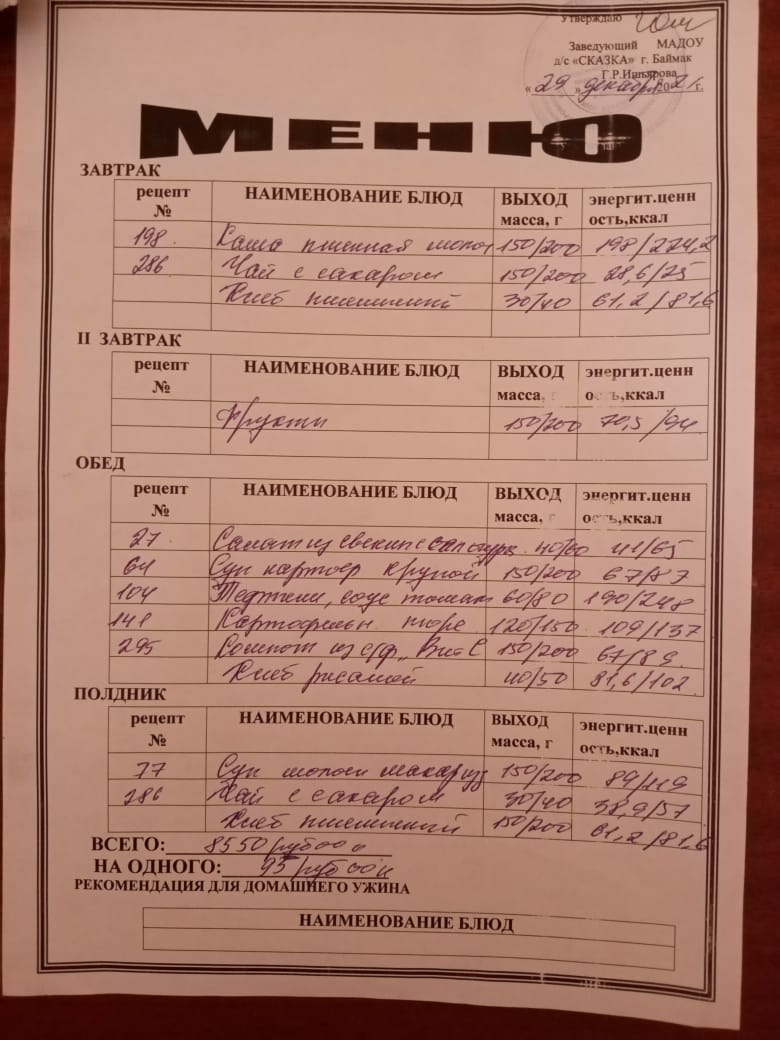 Утверждаю
Заведующий МАДОУ
д/с «СКАЗКА» г. Баймак
« 29 » декабря 2021г.
МЕНЮ
ЗАВТРАК
рецепт № НАИМЕНОВАНИЕ БЛЮД ВЫХОД масса, г энергит.ценн ость,ккал
198 Каша пшенная молоч 150/200 198/224,2
286 Чай с сахаром 150/200 28,6/75
Хлеб пшеничный 30/40 61,2/81,6
II ЗАВТРАК
рецепт № НАИМЕНОВАНИЕ БЛЮД ВЫХОД масса, г энергит.ценн ость,ккал
Фрукты 150/200 70,5/94
ОБЕД
рецепт № НАИМЕНОВАНИЕ БЛЮД ВЫХОД масса, г энергит.ценн ость,ккал
27 Салат из свеклы с сол огурц 40/60 41/65
64 Суп картоф крупой 150/200 67/87
104 Тефтели, соус томат 60/80 190/248
148 Картофельн пюре 120/150 109/137
295 Компот из с/ф „Вит С 150/200 67/89
Хлеб ржаной 40/50 81,6/102
ПОЛДНИК
рецепт № НАИМЕНОВАНИЕ БЛЮД ВЫХОД масса, г энергит.ценн ость,ккал
77 Суп молочн макар изд 150/200 89/119
286 Чай с сахаром 30/40 38,9/57
Хлеб пшеничный 150/200 61,2/81,6
ВСЕГО: 8550 руб 00 к
НА ОДНОГО: 95 руб 00 к
РЕКОМЕНДАЦИЯ ДЛЯ ДОМАШНЕГО УЖИНА
НАИМЕНОВАНИЕ БЛЮД